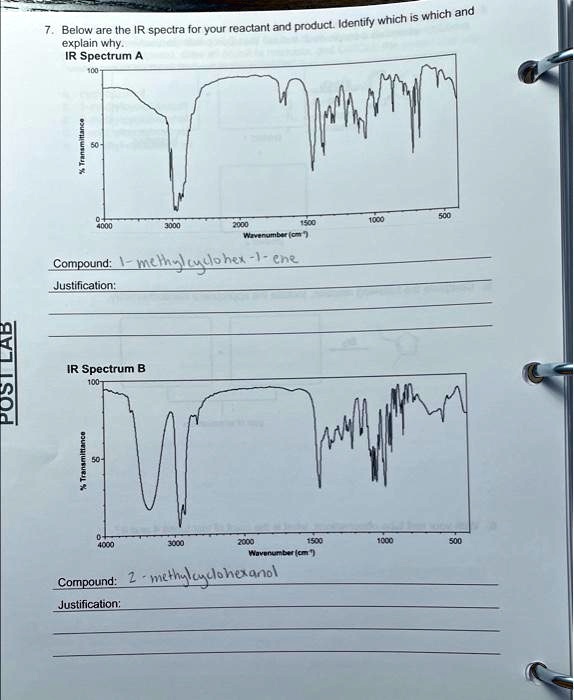 7. Below are the IR spectra for your reactant and product. Identify which is which and
explain why.
IR Spectrum A
100
50
0
% Transmittance
4000 3000 2000 1500 1000 500
Wavenumber (cm⁻¹)
Compound: 1-methylcyclohex-1-ene
Justification:
POST LAB
IR Spectrum B
100
50
0
% Transmittance
4000 3000 2000 1500 1000 500
Wavenumber (cm⁻¹)
Compound: 2-methylcyclohexanol
Justification: